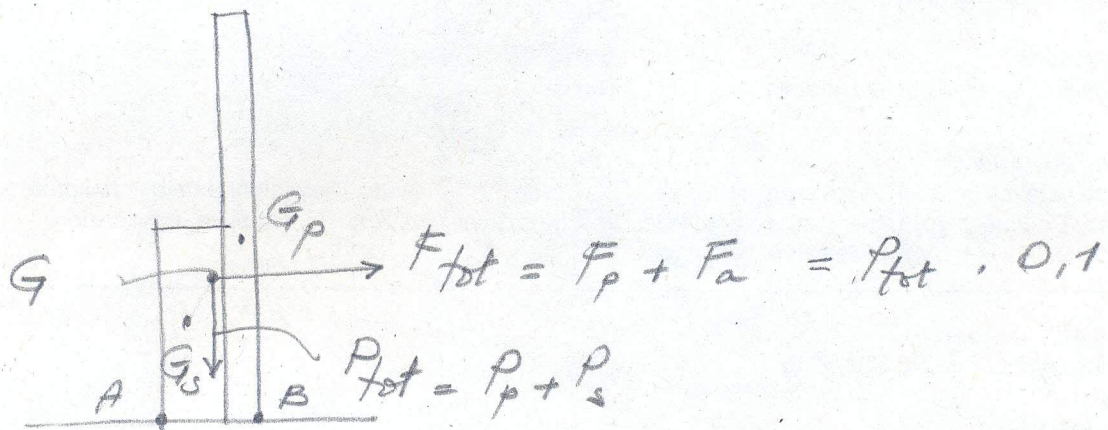 Gp
G
Ftot = Fp + Fa = Ptot . 0,1
Gs
Ptot = Pp + Ps
A
B